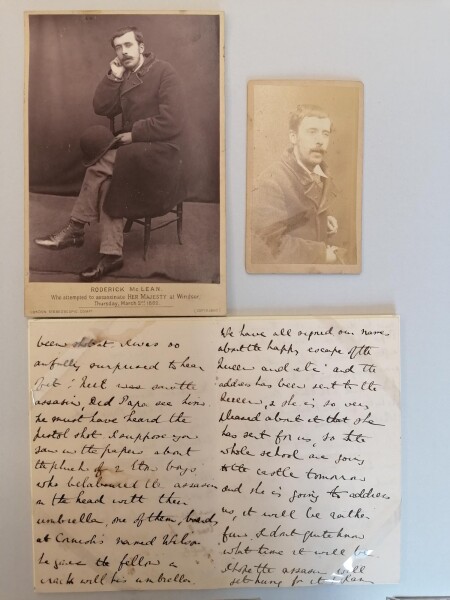 RODERICK McLEAN.
Who attempted to assassinate HER MAJESTY at Windsor,
Thursday, March 2nd 1882.
been shot at I was so
awfully surprised to hear
of it! that was
assassin, Did Papa see him
he must have heard the
pistol shot. I suppose you
saw in the papers about
the pluck of 2 Eton boys
who belaboured the assassin
on the head with their
umbrella, one of them, boards
at Cornish's named Wilson
he gave the fellow a
crack with his umbrella
We have all signed our names
about the happy escape of the
Queen and etc: and the
address has been sent to the
Queen, & she is so very
pleased about it that she
has sent for us, so the
whole school are going
to the castle tomorrow
and she is going to address
us, it will be rather
fun, I don't quite know
what time it will be
I hope the assassin will
get hung for it